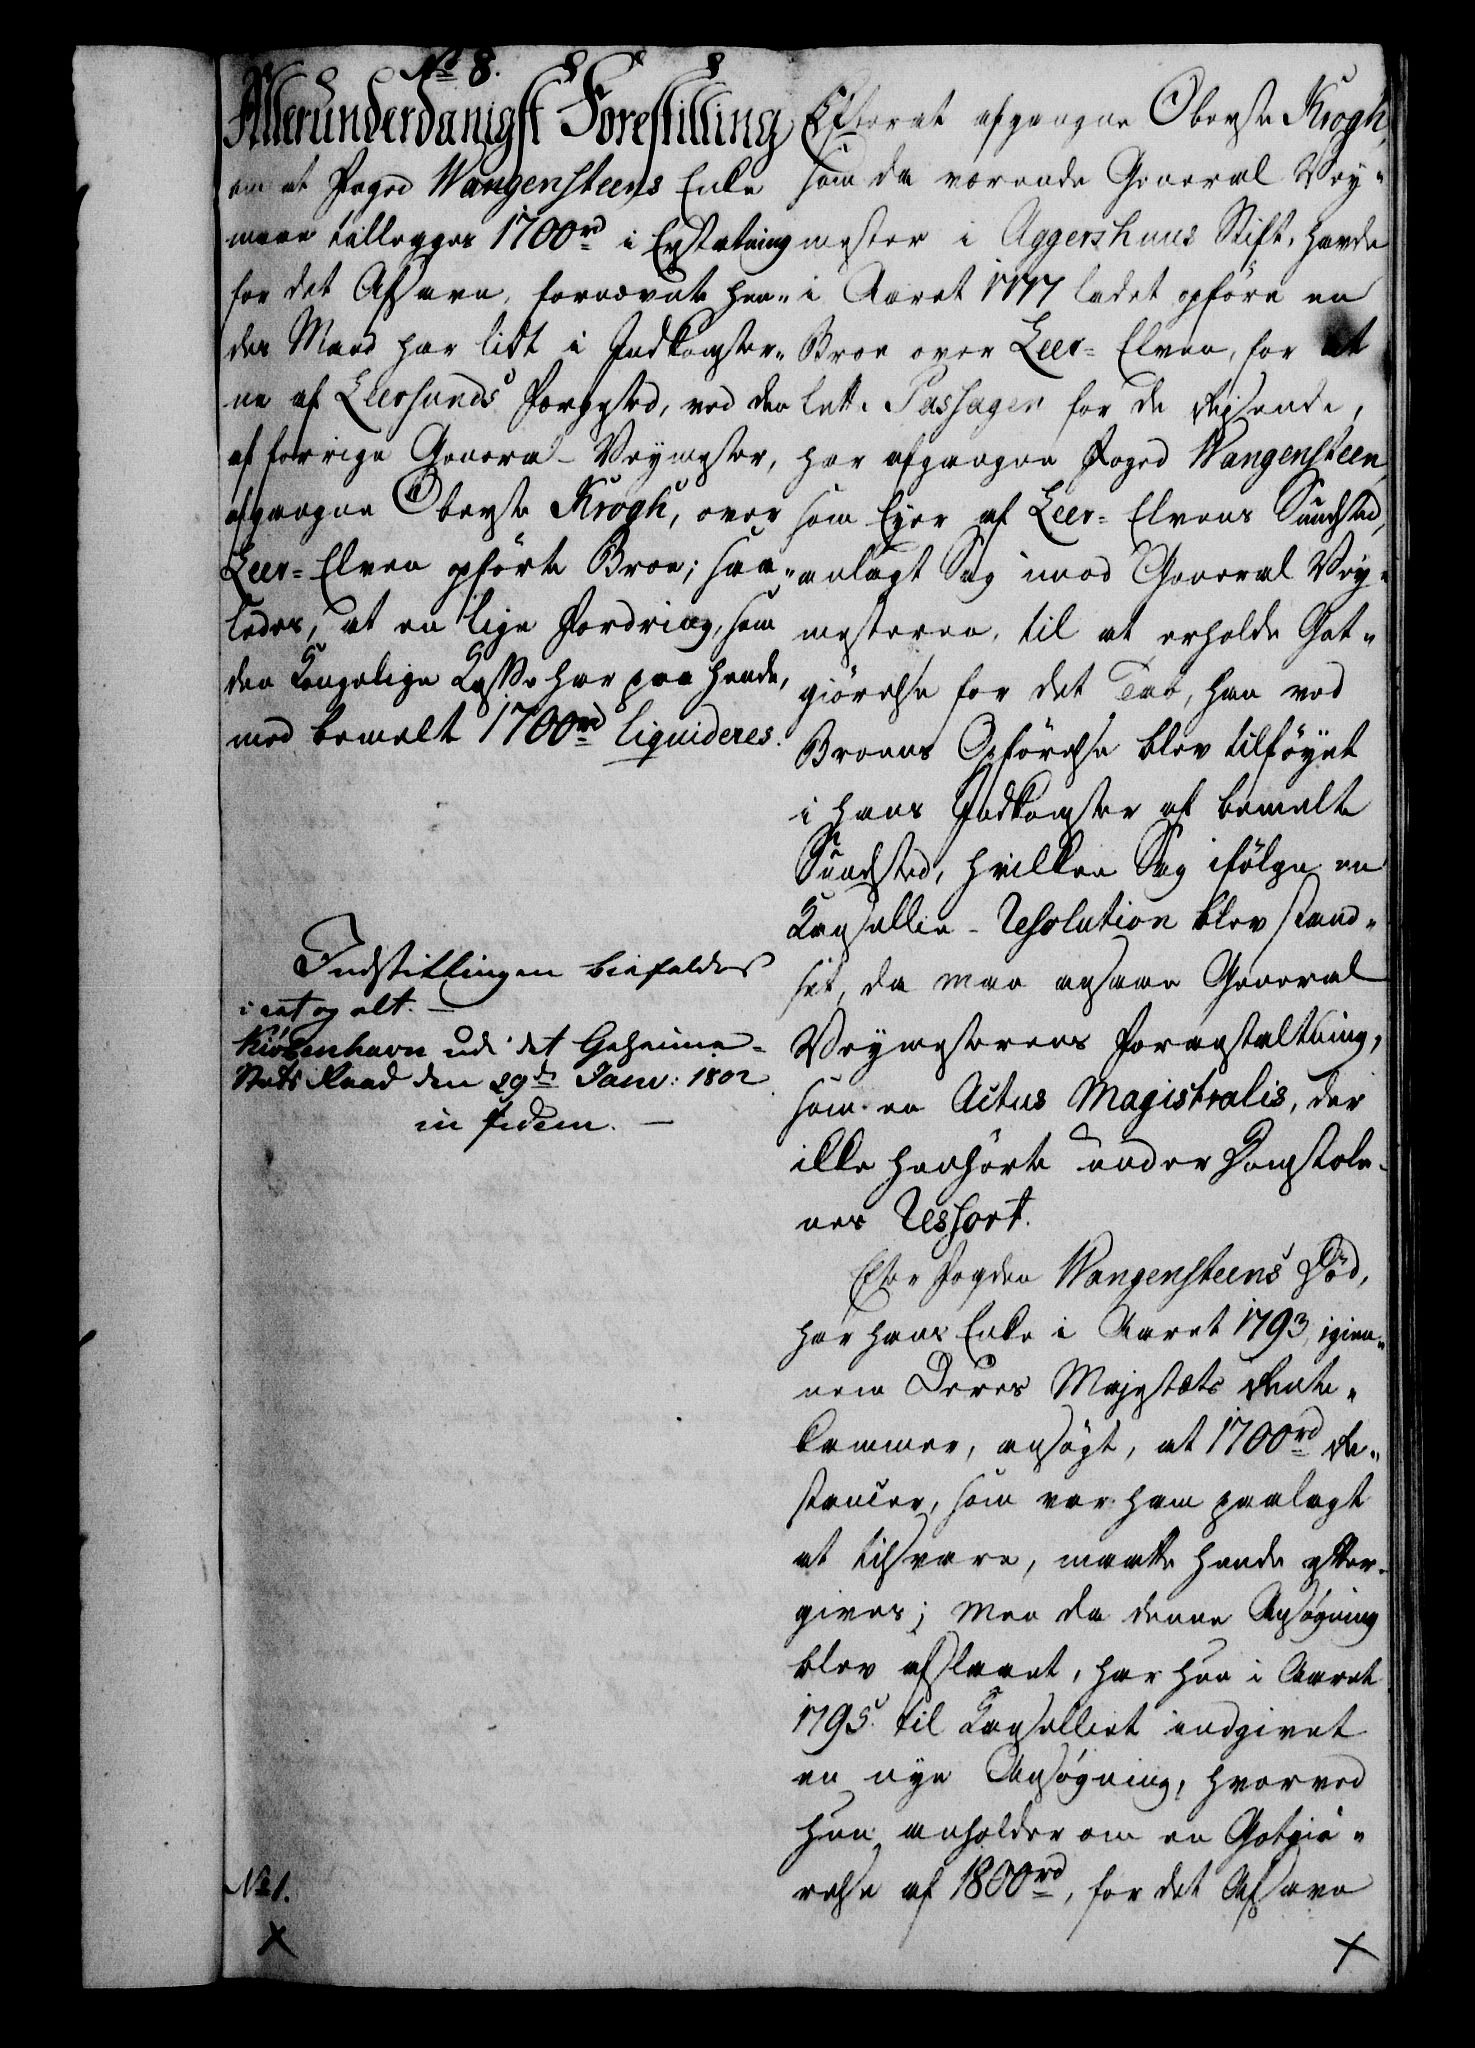 No 8.
Allerunderdanigst Forestilling
om at Foged Wangensteens Enke
maae tillegges 1700rd i Erstatning
for det Afsavn, fornævnte hen-
des Mand har lidt i Indkomster-
ne af Leersunds Færgsted, ved den
af forrige General-Veymester,
afgangne Oberste Krogh, over
Leer-Elven opförte Broe; saa-
ledes, at en lige Fordring, som
den Kongelige Kasse har paa hende,
med bemelt 1700rd liquideres.
Indstillingen biefaldes
i eet og alt. —
Kiöbenhavn udi det Geheime-
Stats Raad den 29de Janv: 1802
in fidem. —
No 1.
x
Efterat afgangne Oberste Krogh,
som da værende General Vey-
mester i Aggershuus Stift, havde
i Aaret 1777 ladet opföre en
Broe over Leer-Elven, for at
lette Passagen for de Reisende,
har afgangne Foged Wangensteen,
som Eyer af Leer-Elvens Sundsted,
anlagt Sag imod General Vey-
mesteren, til at erholde Got-
giörelse for det Tab, han ved
Broens Opförelse blev tilföyet
i hans Indkomster af bemelte
Sundsted, hvilken Sag ifölge en
Kancellie-Resolution blev stand-
set, da man ansaae General
Veymesterens Foranstaltning,
som en Actus Magistralis, der
ikke henhörte under Domstole-
nes Ressort.
Efter Fogden Wangensteens Död,
har hans Enke i Aaret 1793, igien-
nem Deres Majestæts Rente-
kammer, ansögt, at 1700rd Re-
stancer, som var ham paalagt
at tilsvare, maatte hende efter-
gives; men da denne Ansögning
blev afslaaet, har hun i Aaret
1795. til Kancelliet indgivet
en nye Ansögning, hvorved
hun anholder om en Gotgiö-
relse af 1800rd, for det Afsavn
x